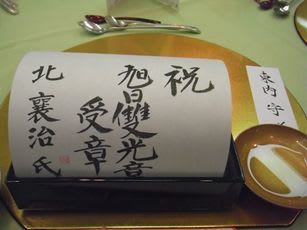 祝
旭日雙光章
受章
北襄治氏
東内守